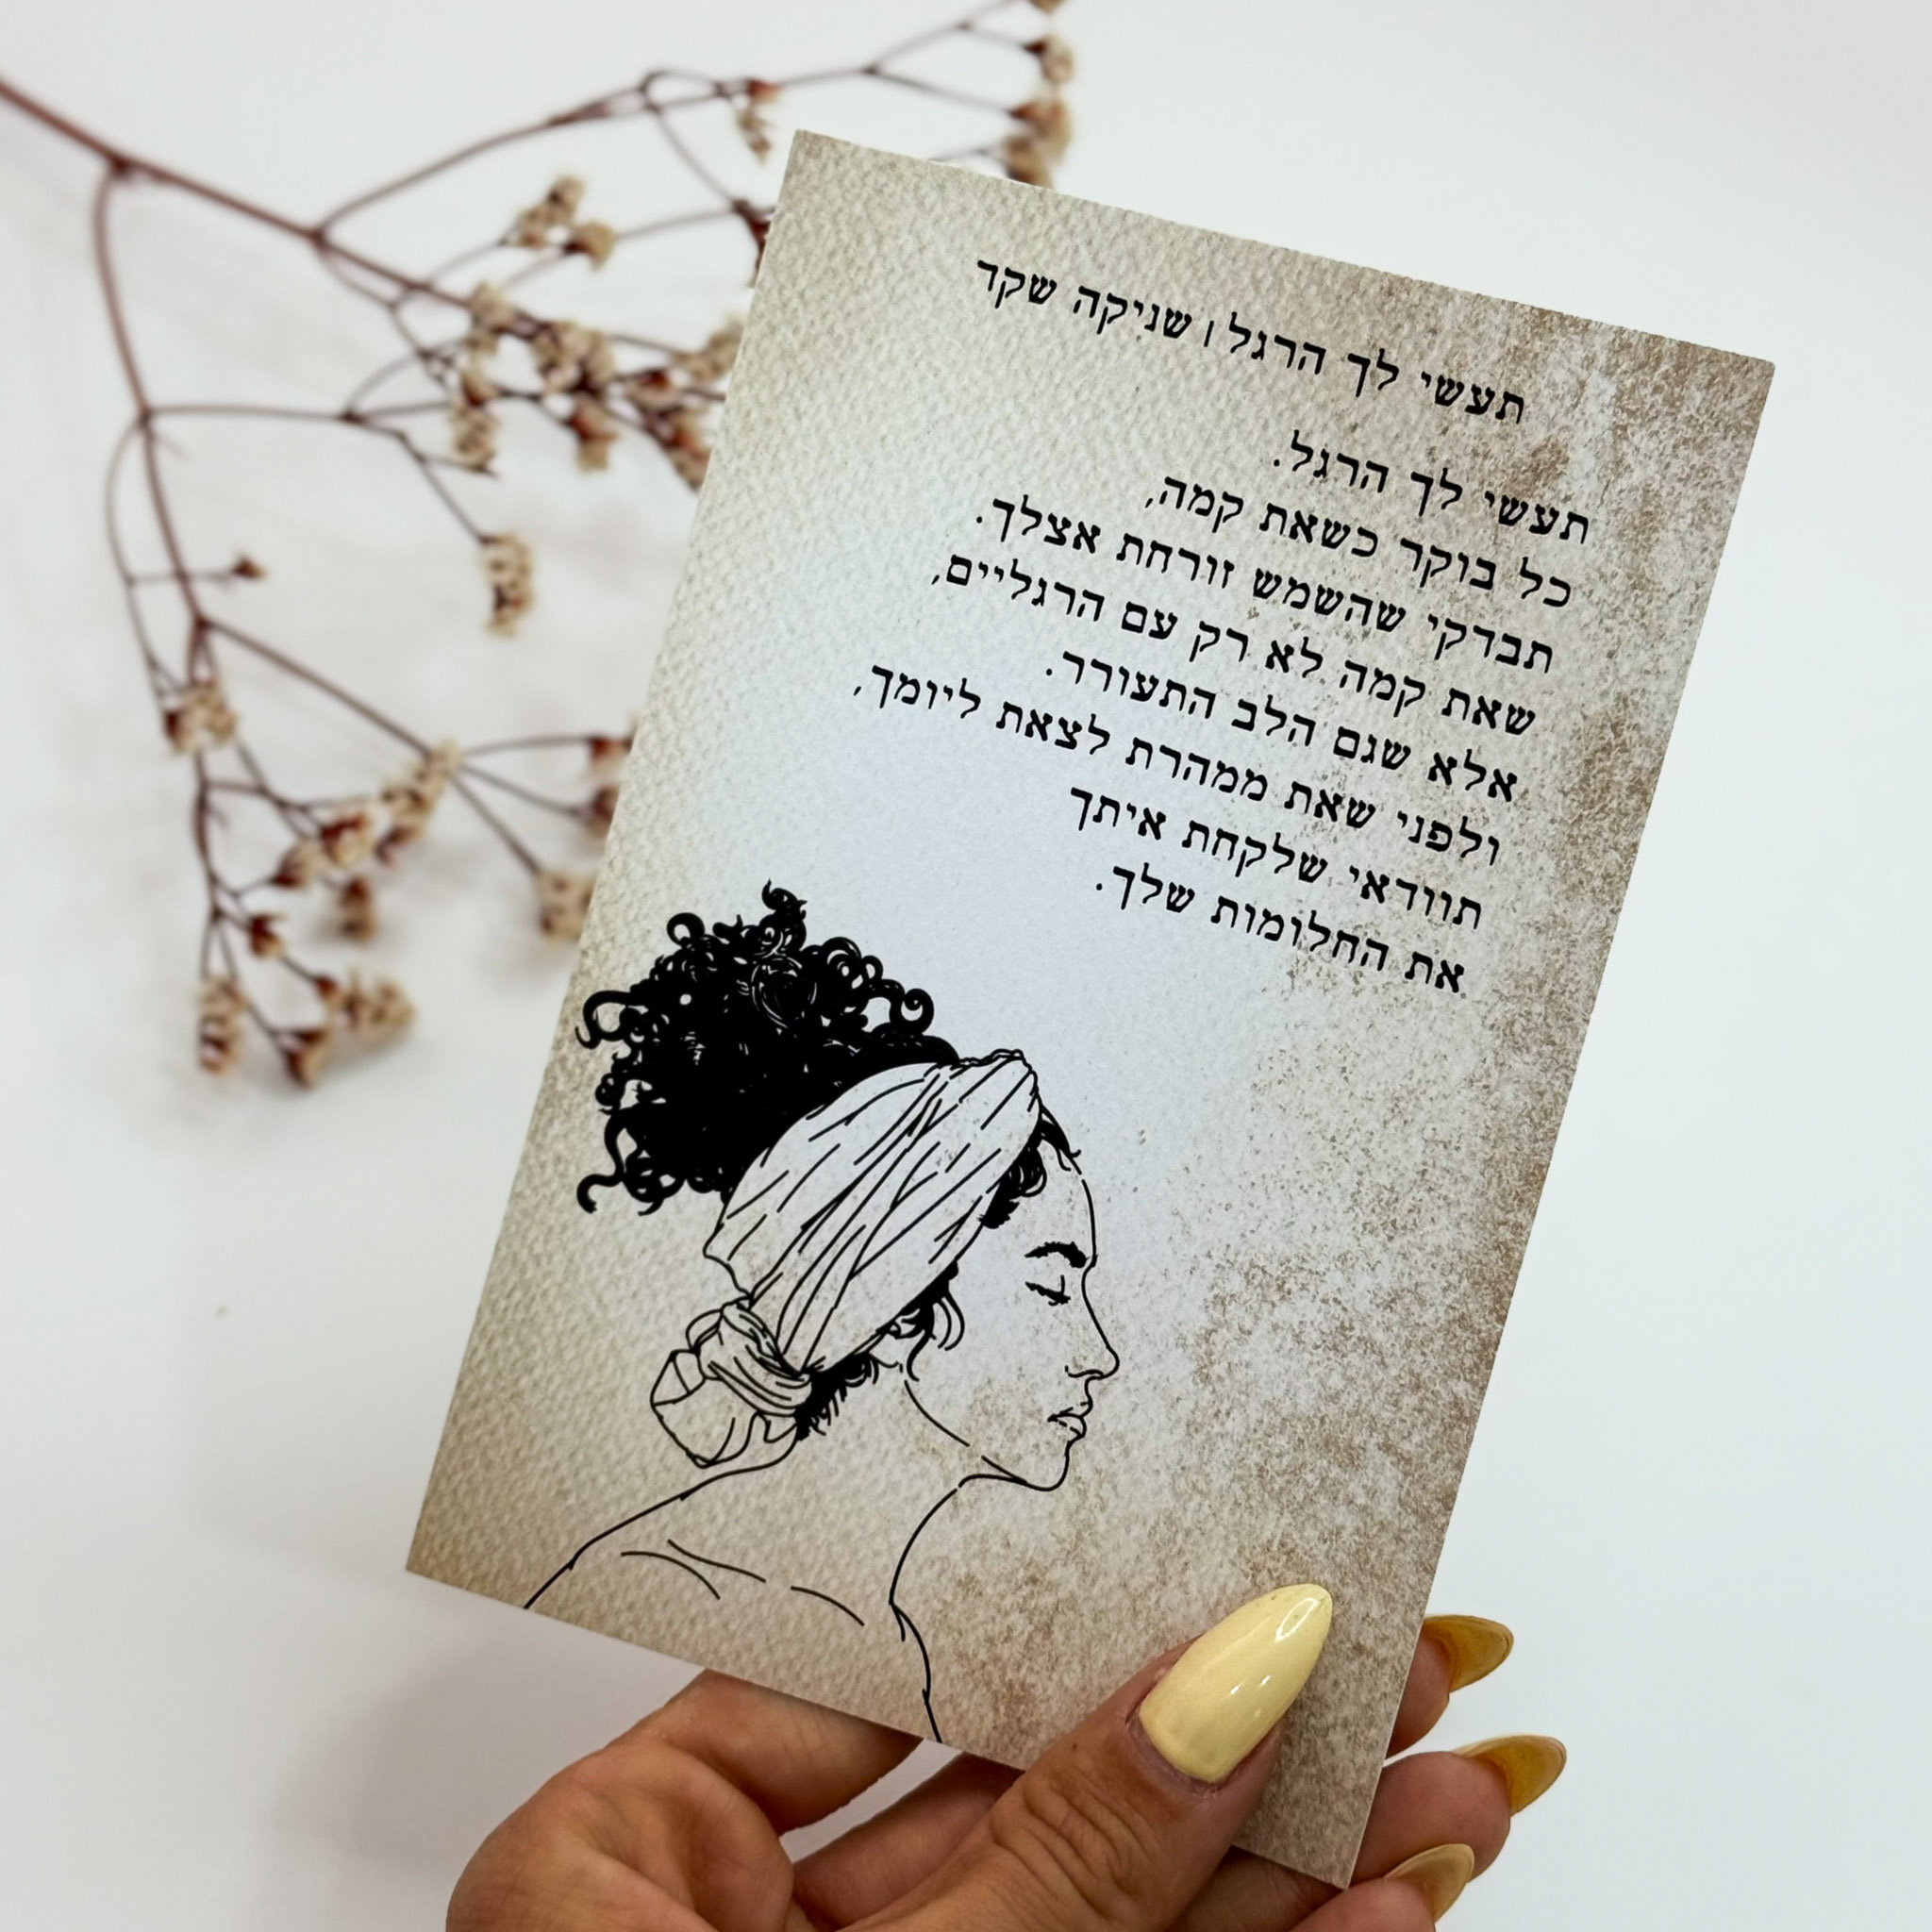 תעשי לך הרגל | שניקה שקד
תעשי לך הרגל.
כל בוקר כשאת קמה,
תבדקי שהשמש זורחת אצלך.
שאת קמה לא רק עם הרגליים,
אלא שגם הלב התעורר.
ולפני שאת ממהרת לצאת ליומך,
תוודאי שלקחת איתך
את החלומות שלך.